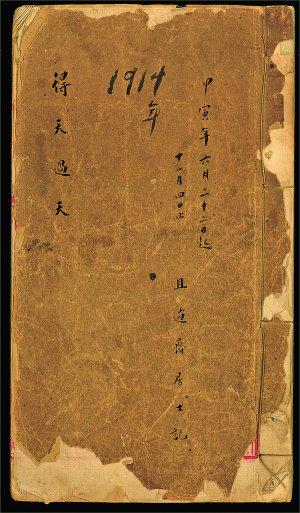 甲寅年六月二十二日起
十一月四日止
且過齋居士記
1914
年
得天過天